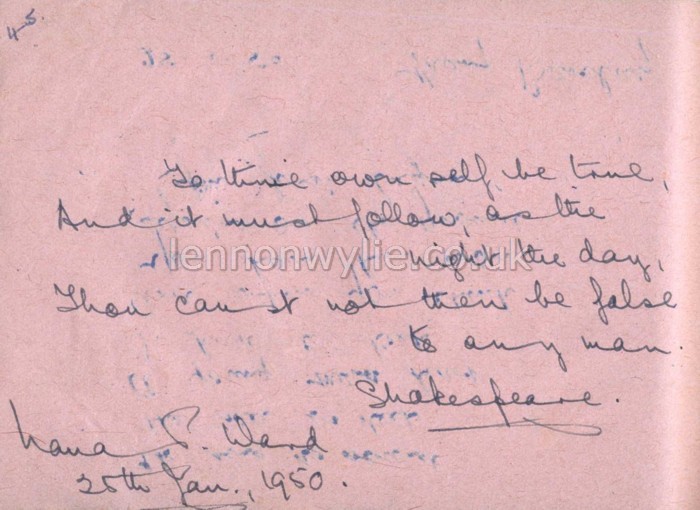 45.
To thine own self be true,
And it must follow, as the
night the day,
lennonwylie.co.uk
Thou can'st not then be false
to any man.
Shakespeare.
P. Ward
25th Jan., 1950.